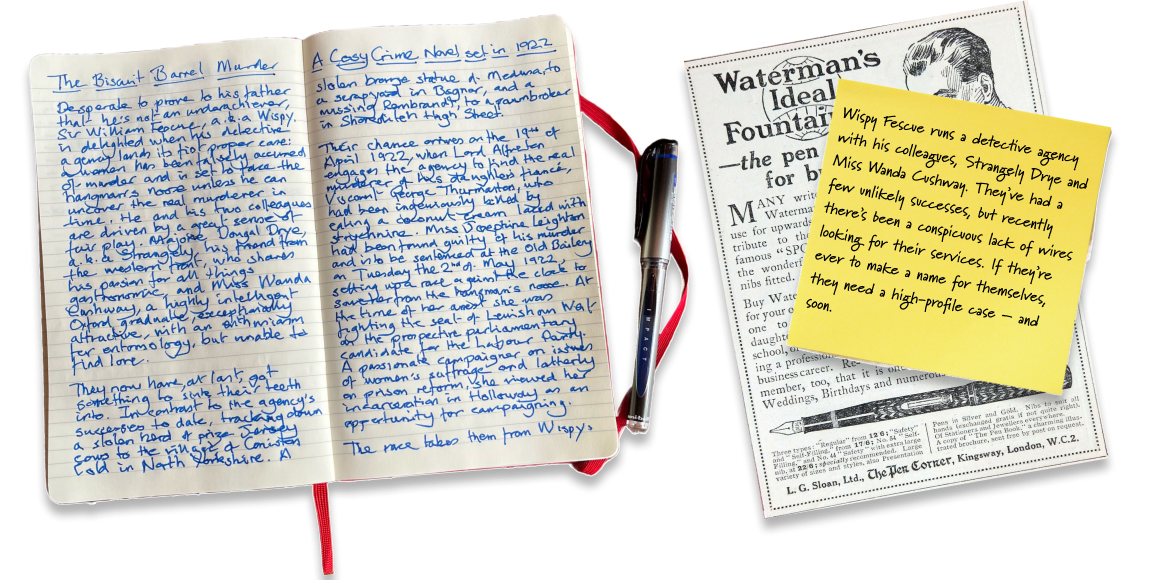 The Biscuit Barrel Murder
Desperate to prove to his father
that he's not an underachiever,
Sir William Fescue, a.k.a Wispy,
is delighted when his detective
agency lands its first proper case:
a woman has been falsely accused
of murder and is set to face the
hangman's noose unless he can
uncover the real murderer in
time. He and his two colleagues
are driven by a great sense of
fair play. Major Dougal Drye,
a.k.a. Strangely, his friend from
the western front, who shares
his passion for all things
gastronomic and Miss Wanda
Cushway, a highly intelligent
Oxford graduate, exceptionally
attractive, with an enthusiasm
for entomology, but unable to
find love.
They now have, at last, got
something to sink their teeth
into. In contrast to the agency's
successes to date, tracking down
a stolen herd of prize Jersey
cows to the village of Coniston
Cold in North Yorkshire. A
A Cosy Crime Novel set in 1922
stolen bronze statue of Medusa to
a scrapyard in Bognor, and a
missing Rembrandt, to a pawnbroker
in Shoreditch High Street.
Their chance arrives on the 19th of
April 1922, when Lord
engages the agency to find the real
murderer of his daughter's fiancé,
Viscount George Thurmarton, who
had been ingeniously killed by
eating a coconut cream laced with
strychnine. Miss Josephine Leighton
had been found guilty of his murder
and is to be sentenced at the Old Bailey
on Tuesday the 2nd of May 1922,
setting up a race against the clock to
save her from the hangman's noose. At
the time of her arrest she was
fighting the seat of Lewisham West
as the prospective parliamentary
candidate for the Labour Party.
A passionate campaigner on issues
of women's suffrage and latterly
on prison reform, she viewed her
incarceration in Holloway as an
opportunity for campaigning.
The race takes them from Wispy's
IMPACT
Waterman's
Ideal
Fountain
—the pen
for bu
MANY writ
Waterma
use for upwards
tribute to the
famous "SPO
the wonderf
nibs fitted.
Buy Wate
for your o
one to
daughte
school, o
ing a professio
business career. Re
member, too, that it is one
Weddings, Birthdays and numerous
Wispy Fescue runs a detective agency
with his colleagues, Strangely Drye and
Miss Wanda Cushway. They've had a
few unlikely successes, but recently
there's been a conspicuous lack of wires
looking for their services. If they're
ever to make a name for themselves,
they need a high-profile case – and
soon.
Three types: "Regular" from 12/6; "Safety"
and "Self-Filling," from 17/6; No. 54 "Self-
Filling," and No. 44 "Safety" with extra large
nib, at 22/6; specially recommended. Large
variety of sizes and styles, also Presentation
Pens in Silver and Gold. Nibs to suit all
hands (exchanged gratis if not quite right).
Of Stationers and Jewellers everywhere.
A copy of "The Pen Book," a charming illus-
trated brochure, sent free by post on request.
L. G. Sloan, Ltd., The Pen Corner, Kingsway, London, W.C.2.